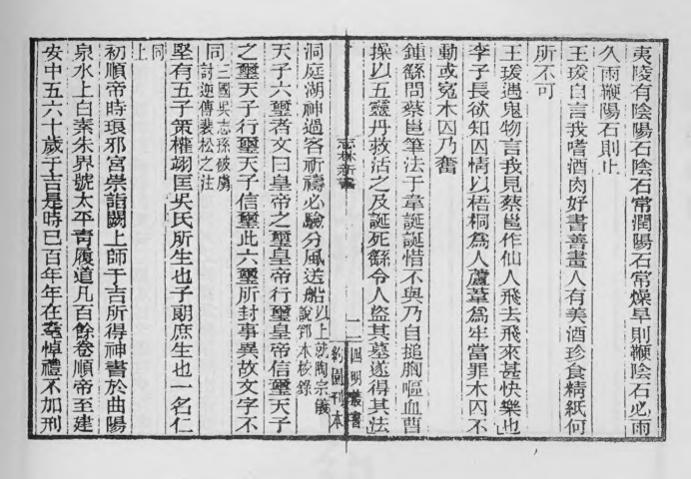 夷陵有陰陽石陰石常潤陽石常燥旱則鞭陰石必雨
久雨鞭陽石則止
王瑗自言我嗜酒肉好書善畫人有美酒珍食精紙何
所不可
王瑗遇鬼物言我見蔡邕作仙人飛去飛來甚快樂也
李子長欲知囚情以梧桐爲人蘆葦爲牢當罪木囚不
動或寃木囚乃奮
鍾繇問蔡邕筆法于韋誕誕惜不與乃自搥胸嘔血曹
操以五靈丹救活之及誕死繇令人盜其墓遂得其法
志林新書
二
四明叢書
約園刊本
洞庭湖神過客祈禱必驗分風送船以上就陶宗儀
說郛本校錄
天子六璽者文曰皇帝之璽皇帝行璽皇帝信璽天子
之璽天子行璽天子信璽此六璽所封事異故文字不
同三國吳志孫破虜
討逆傳裴松之注
堅有五子策權翊匡吳氏所生也子朗庶生也一名仁
同
上
初順帝時琅邪宮崇詣闕上師于吉所得神書於曲陽
泉水上白素朱界號太平青履道凡百餘卷順帝至建
安中五六十歲于吉是時已百年年在耄悼禮不加刑